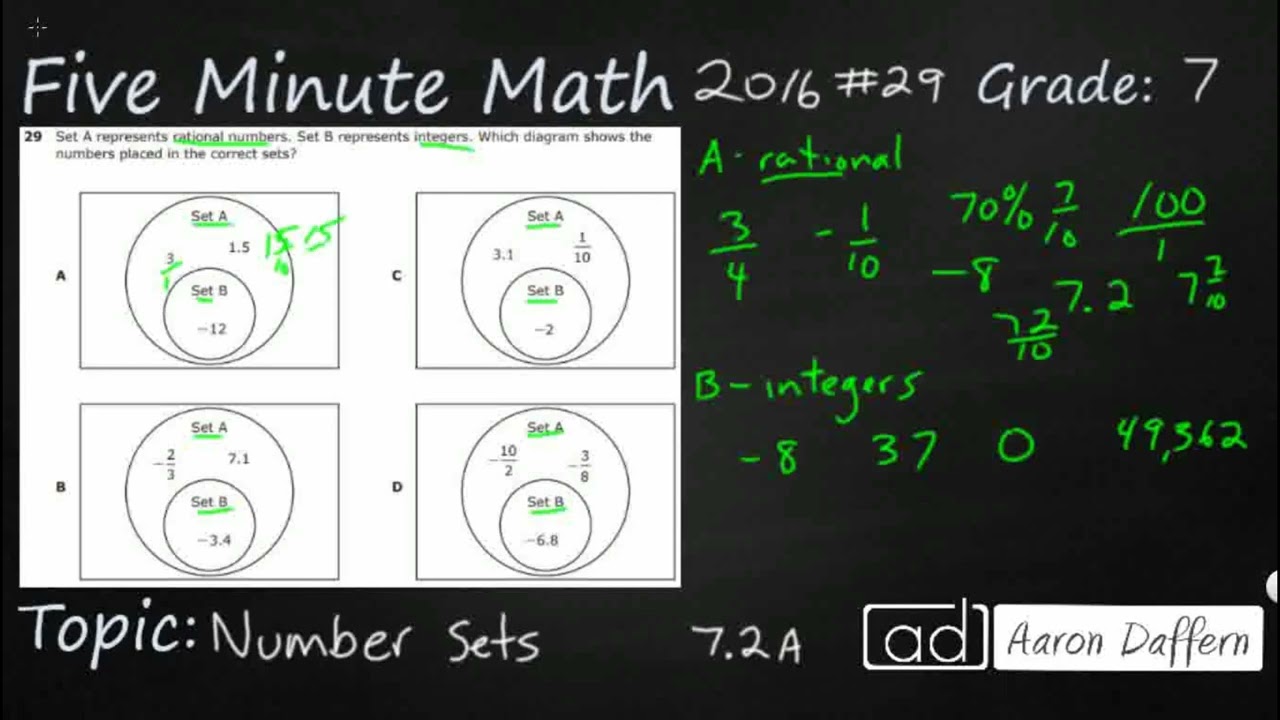 Five Minute Math 2016 #29 Grade: 7
29 Set A represents rational numbers. Set B represents integers. Which diagram shows the
numbers placed in the correct sets?
A
Set A
3/1 1.5 15/10 15
Set B
−12
C
Set A
3.1 1/10
Set B
−2
B
Set A
−2/3 7.1
Set B
−3.4
D
Set A
−10/2 −3/8
Set B
−6.8
A - rational
3/4 -1/10 70% 7/10 100/1
-8 7.2 7 2/10
72/10
B - integers
-8 37 0 49,362
Topic: Number Sets 7.2A
ad Aaron Daffern